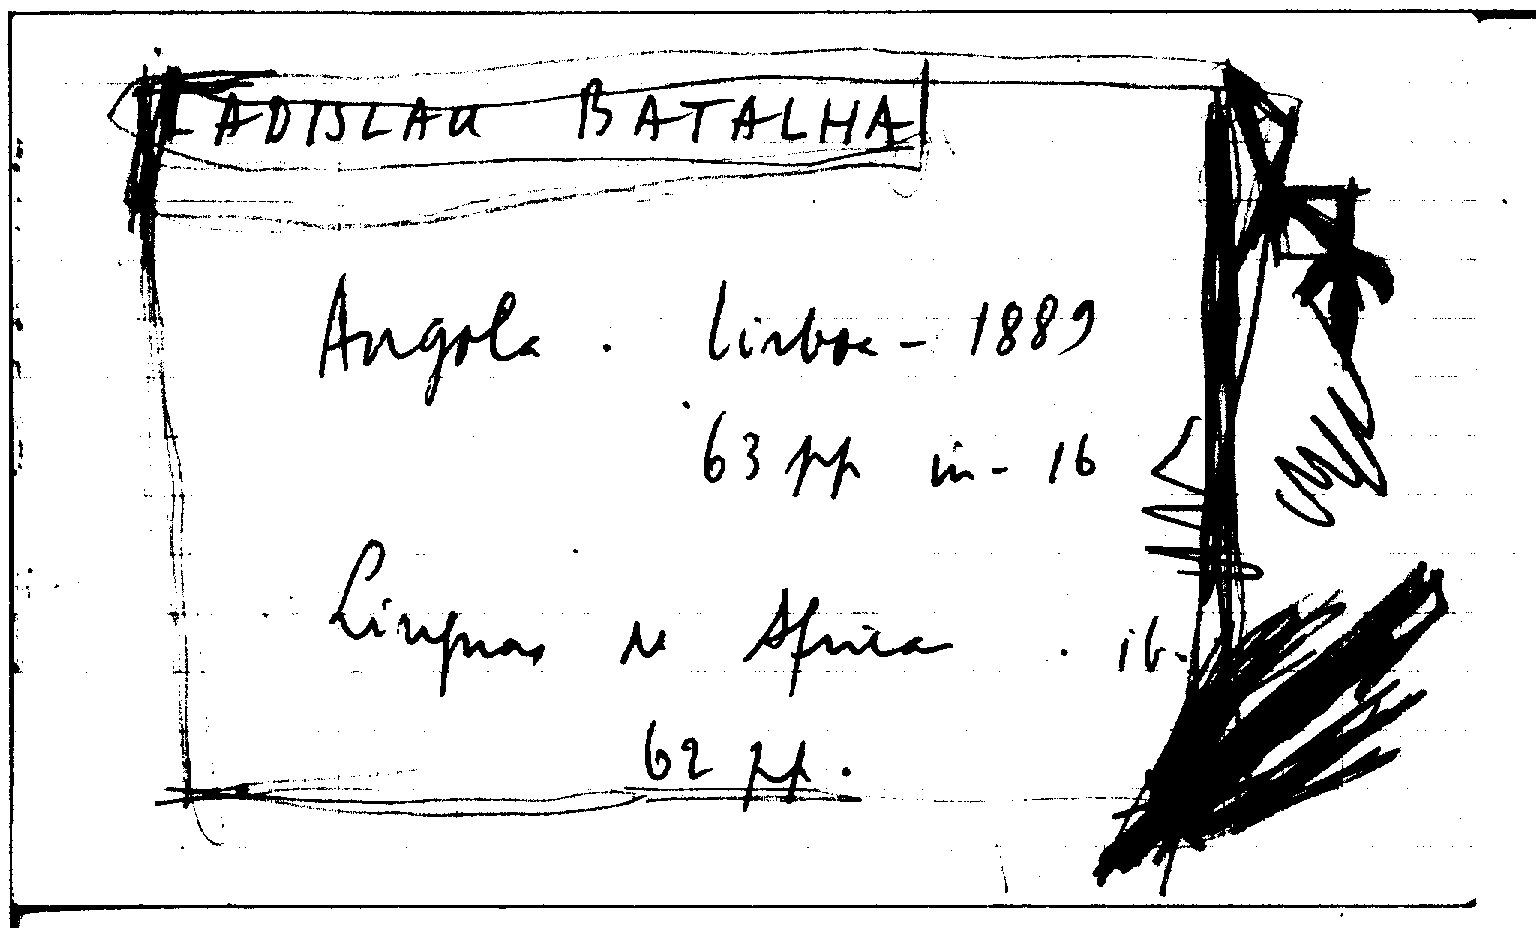 LADISLAU BATALHA
Angola . Lisboa - 1889
63 pp in - 16
Linguas de Africa . ib.
62 pp.